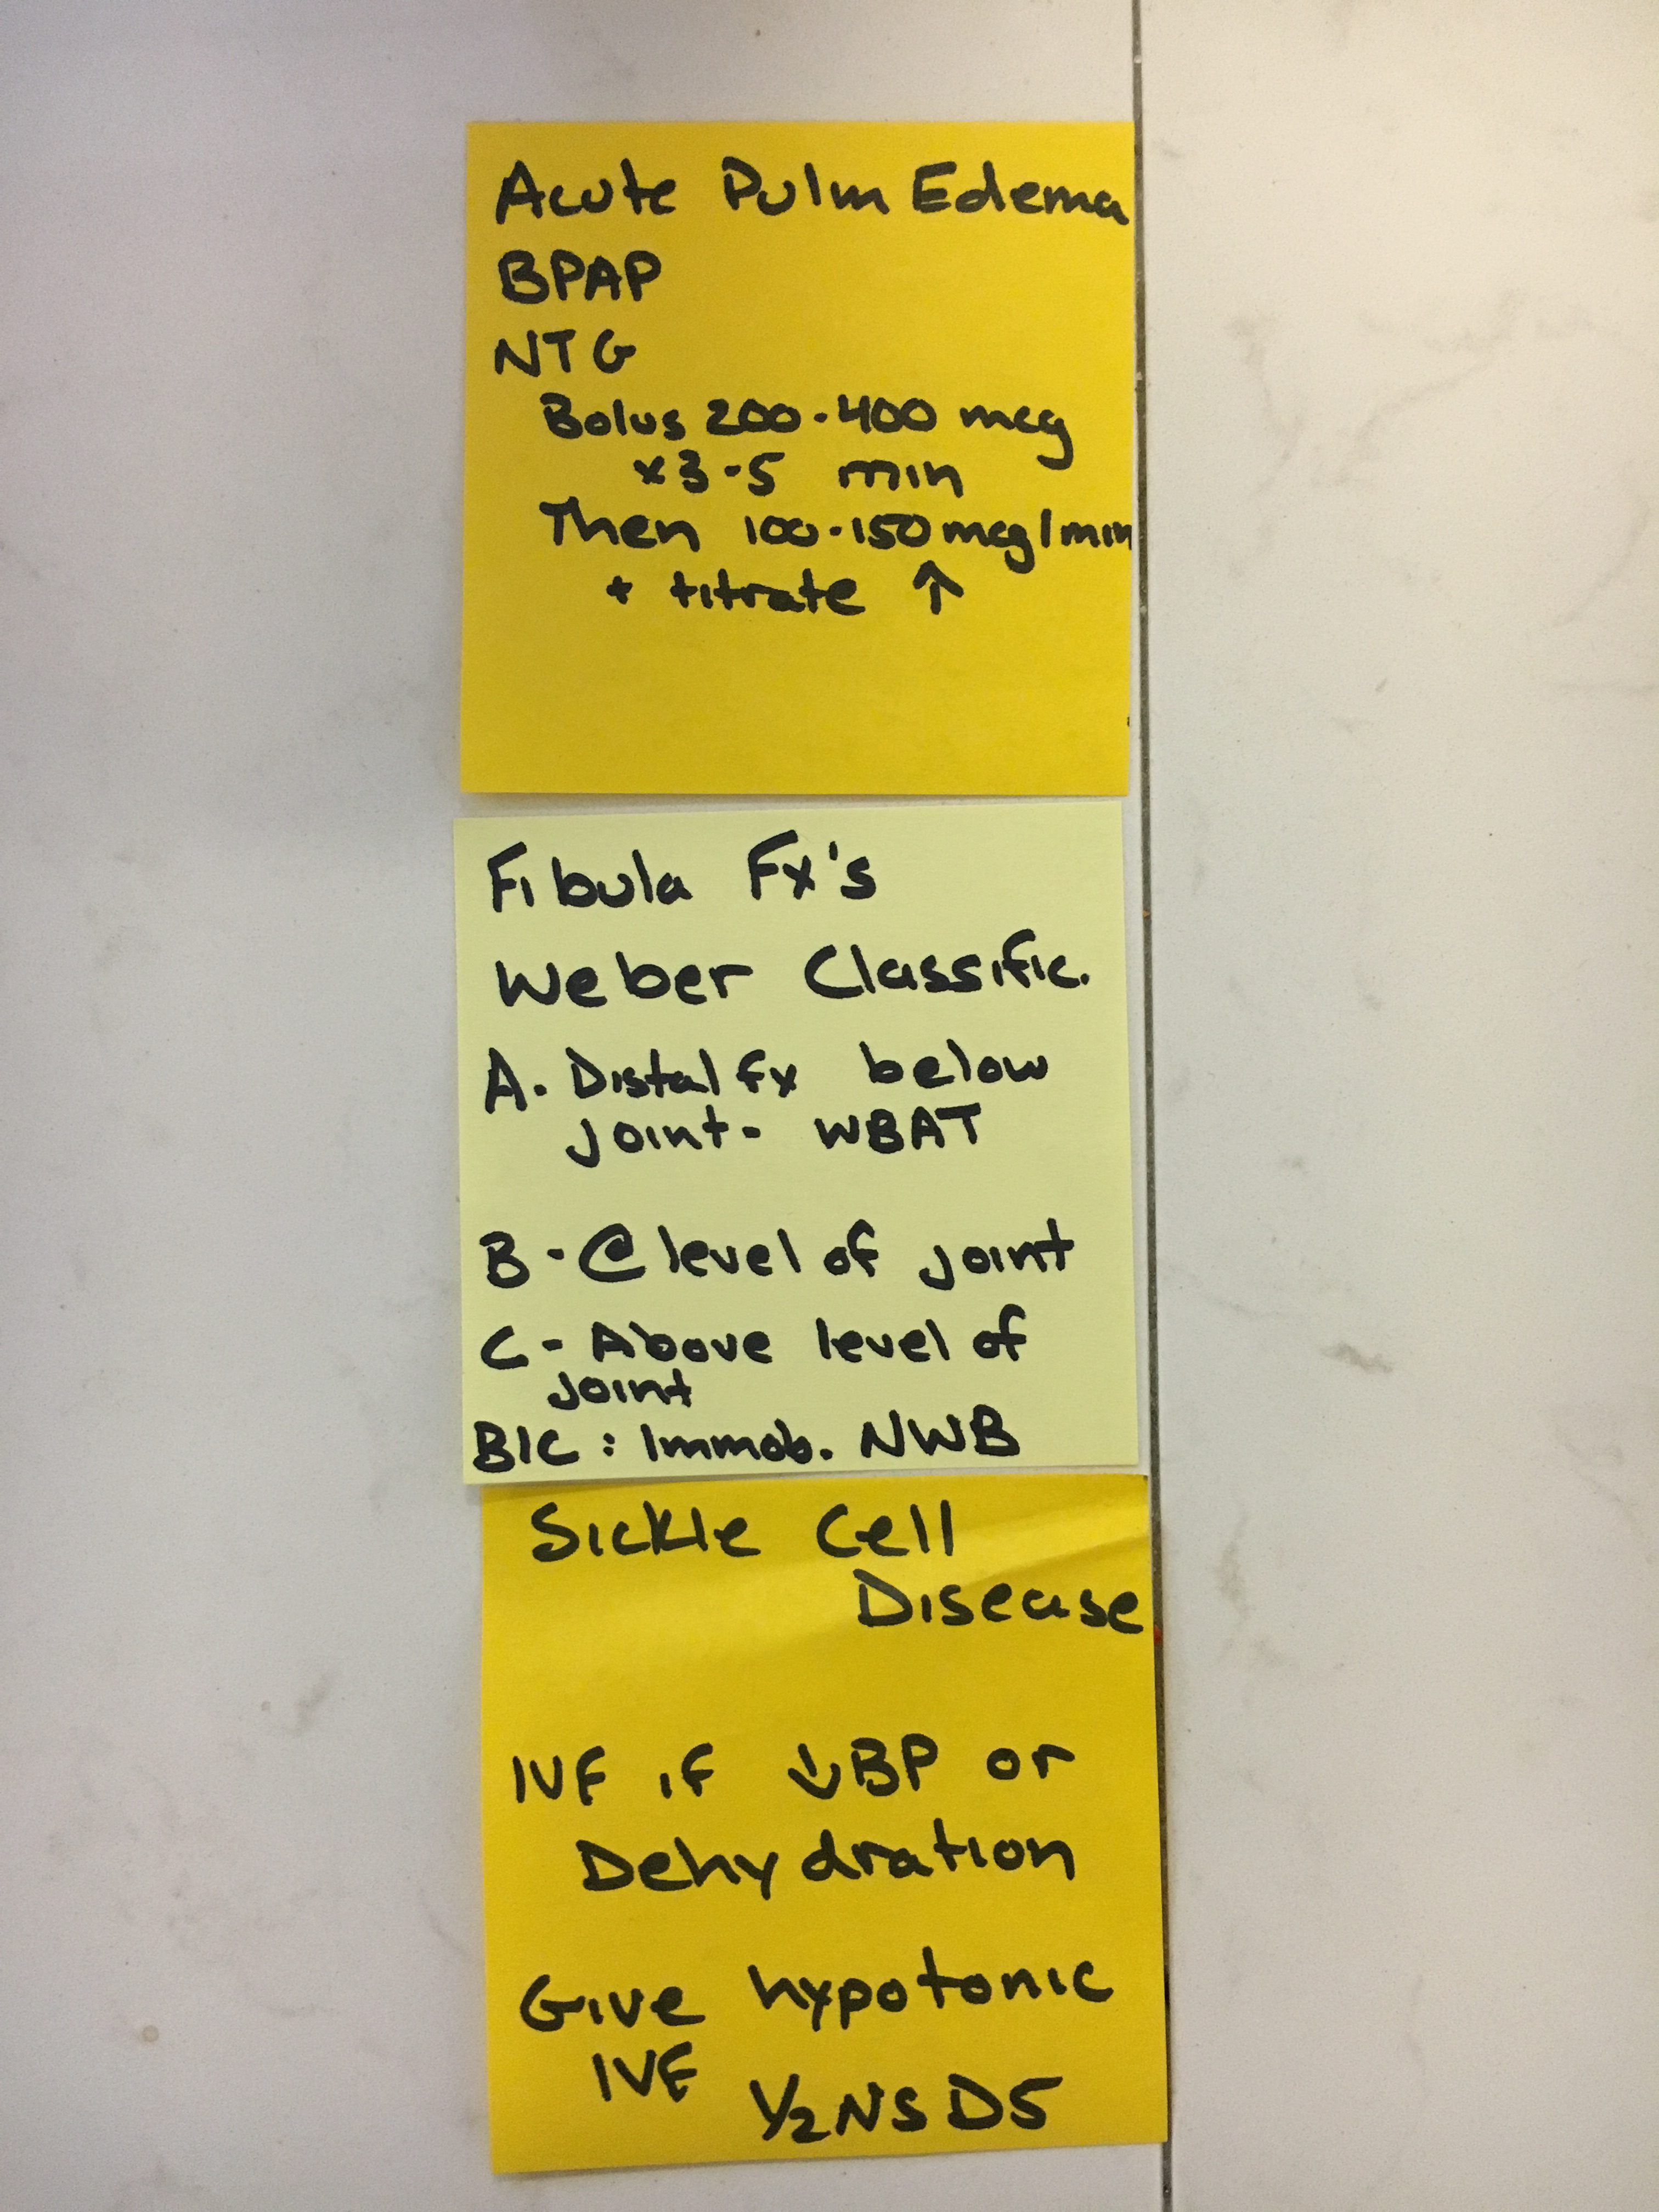 Acute Pulm Edema
BPAP
NTG
Bolus 200-400 mcg
x3-5 min
Then 100-150mcg/min
+ titrate ↑
Fibula Fx's
Weber Classific.
A. Distal fx below
joint- WBAT
B-@ level of joint
C- Above level of
joint
B/C: Immob. NWB
Sickle Cell
Disease
IVF if ↓BP or
Dehydration
Give hypotonic
IVF
1/2NS D5